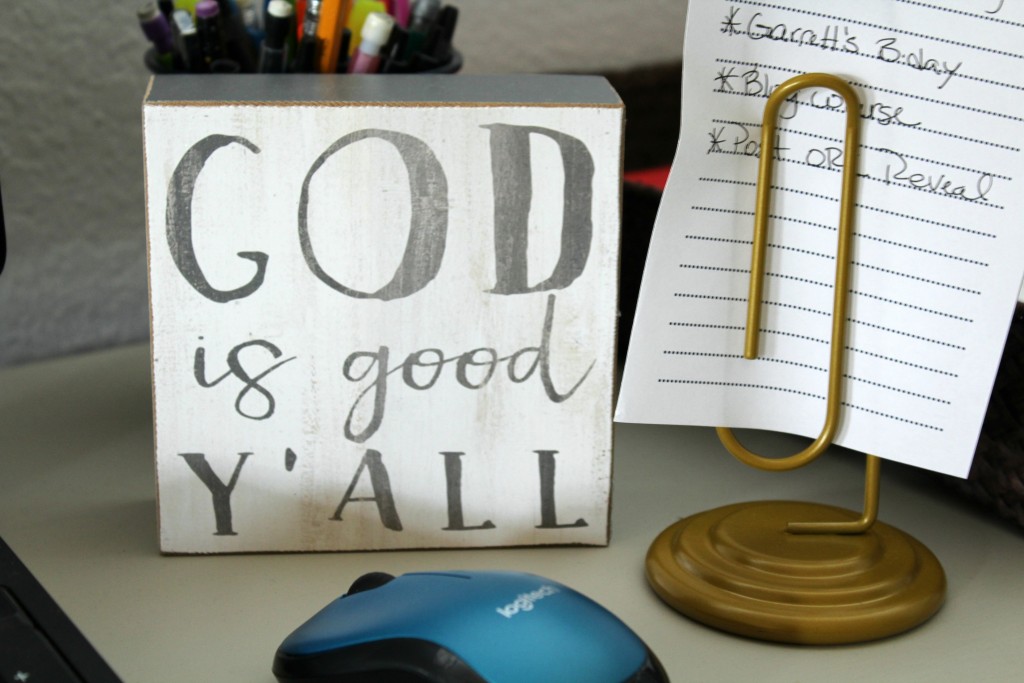 GOD
is good
Y'ALL
*Garrett's B-day
*Blog course
*Post OR Reveal
logitech